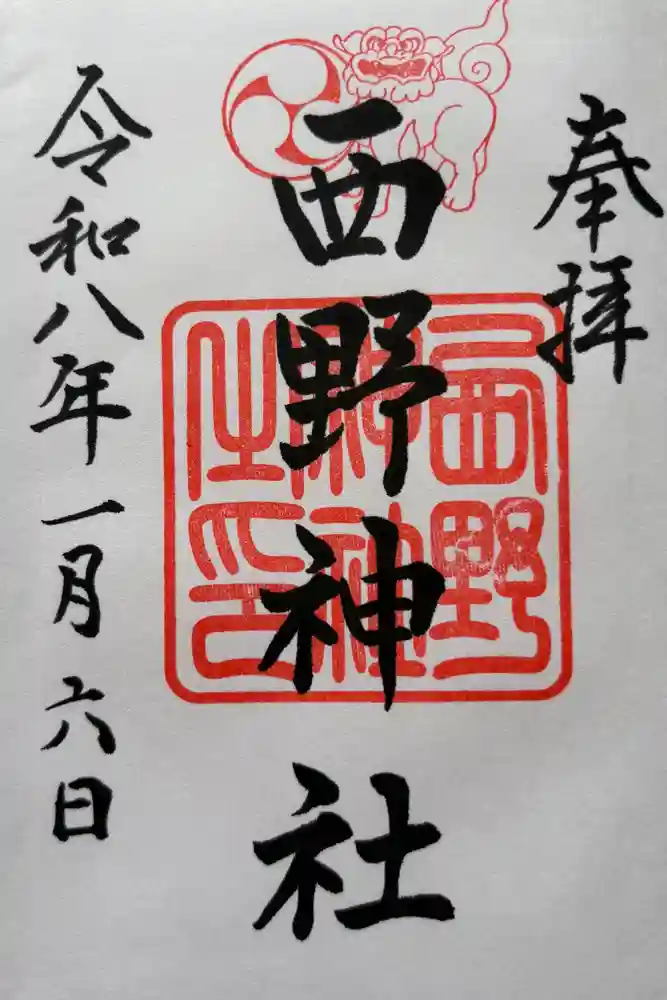 奉拝
西野神社
西野神社之印
令和八年一月六日